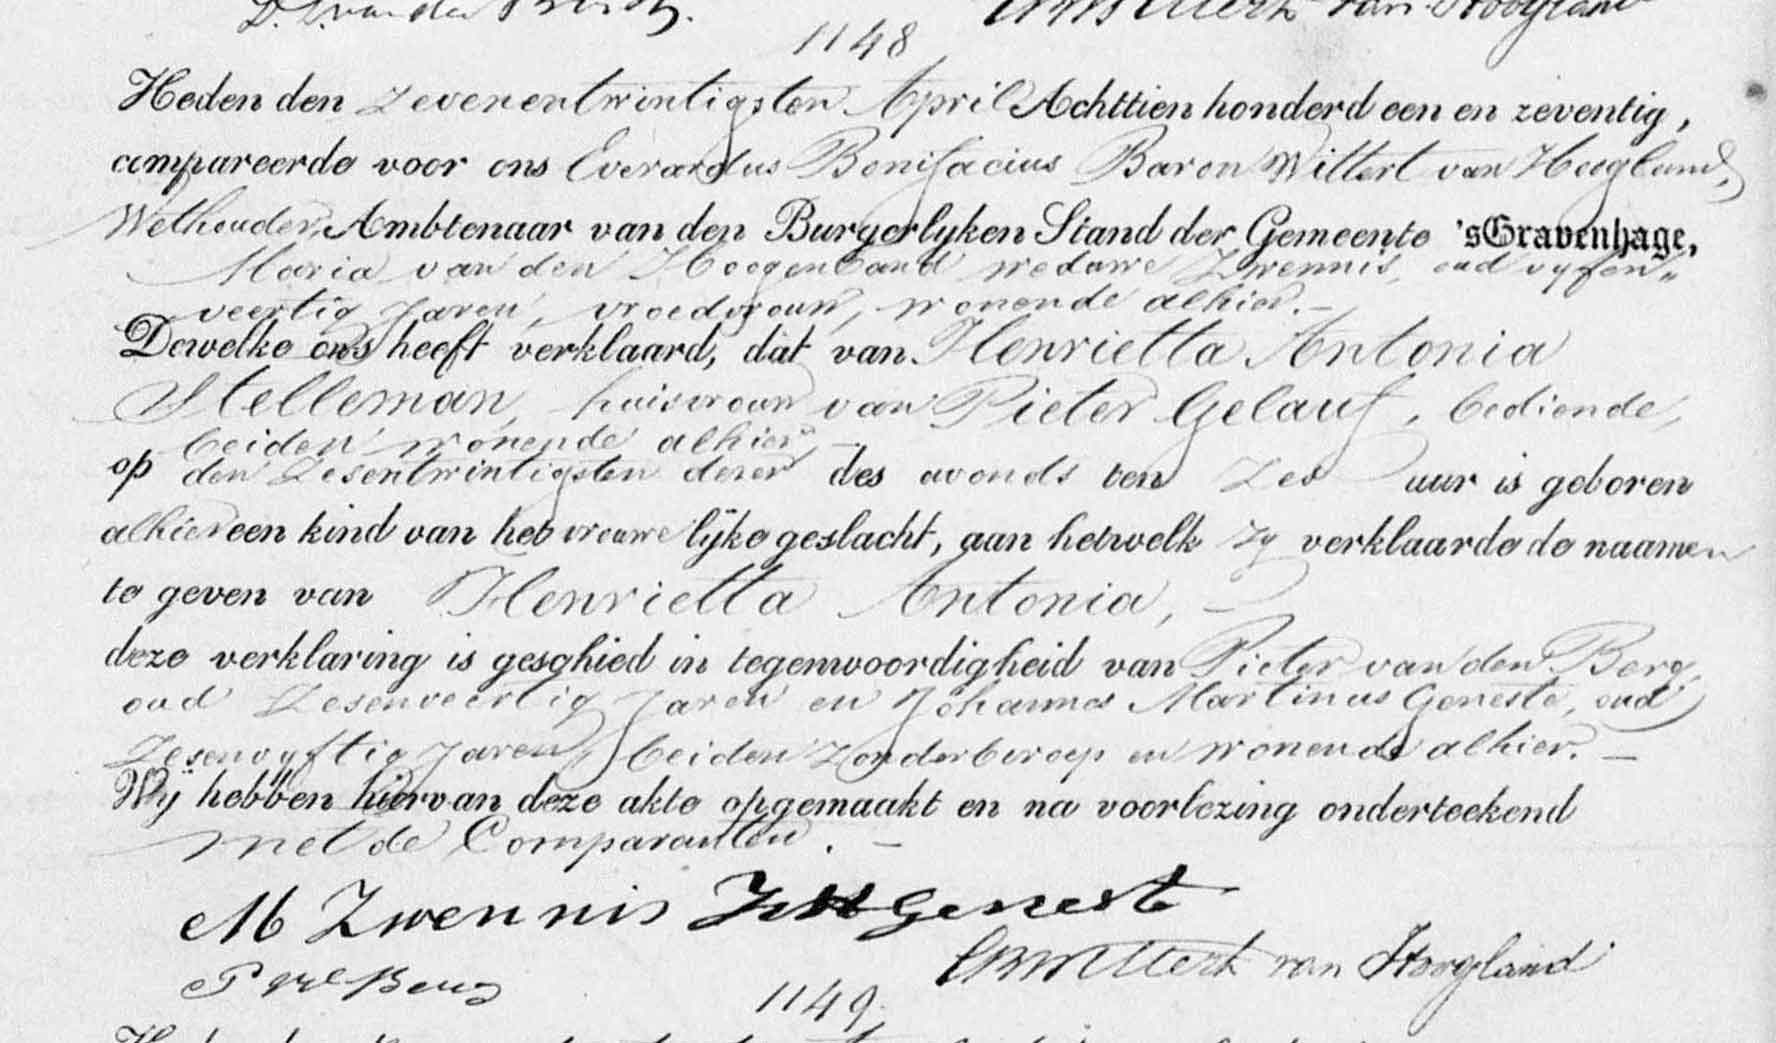 D. L. van der
van Hoogland
1148
Heden den zevenentwintigsten April Achttien honderd een en zeventig,
compareerde voor ons Everardus Bonifacius Baron Wittert van Hoogland,
Wethouder, Ambtenaar van den Burgerlyken Stand der Gemeente 'sGravenhage,
Maria van den Hoogenband weduwe Zwennis, oud vyfen„
veertig Jaren, vroedvrouw, wonende alhier. —
Dewelke ons heeft verklaard, dat van Henrietta Antonia
Stelleman, huisvrouw van Pieter Gelauf, bediende,
beiden wonende alhier, —
op den zesentwintigsten dezer des avonds ten zes uur is geboren
alhier een kind van het vrouwelijke geslacht, aan hetwelk zy verklaarde de naamen
te geven van Henrietta Antonia, —
deze verklaring is geschied in tegenwoordigheid van Pieter van den Berg,
oud zesenveertig Jaren en Johannes Martinus Geneste, oud
zesenvyftig Jaren, beiden zonder beroep en wonende alhier. —
Wij hebben hiervan deze akte opgemaakt en na voorlezing onderteekend
met de Comparanten. —
M Zwennis JM Genest
P vd Berg
EBWittert van Hoogland
1149.